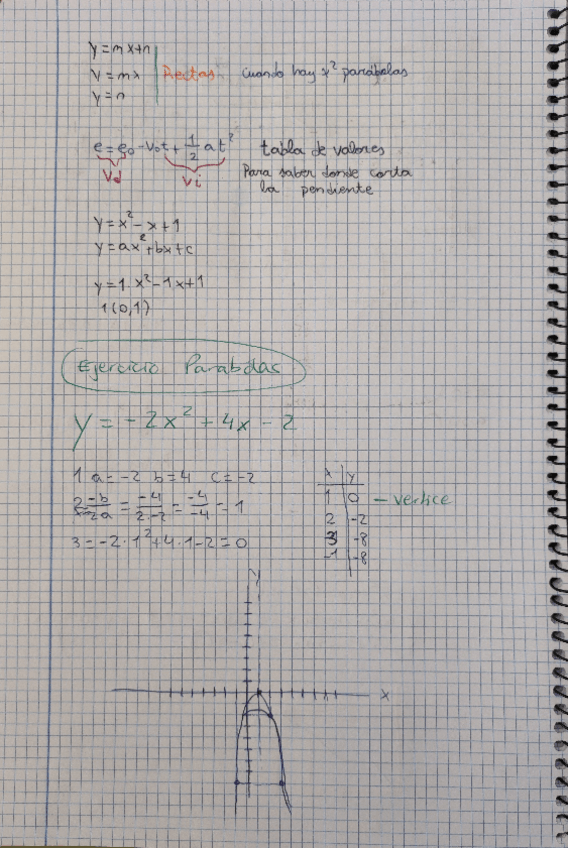 y=mx+n
y=mx Rectas cuando hay x² parábolas
y=n
e=e₀-v₀t+1/2 at² tabla de valores
Vd Vi Para saber donde corta
la pendiente
y=x²-x+1
y=ax²+bx+c
y=1·x²-1x+1
1(0,1)
Ejercicio Parabolas
y=-2x²+4x-2
1 a=-2 b=4 c=-2
x y
1 0 - vertice
2 -b/2a = -4/2·-2 = -4/-4 = 1
2 -2
3 -8
3=-2·1²+4·1-2=0
-1 -8
y
x